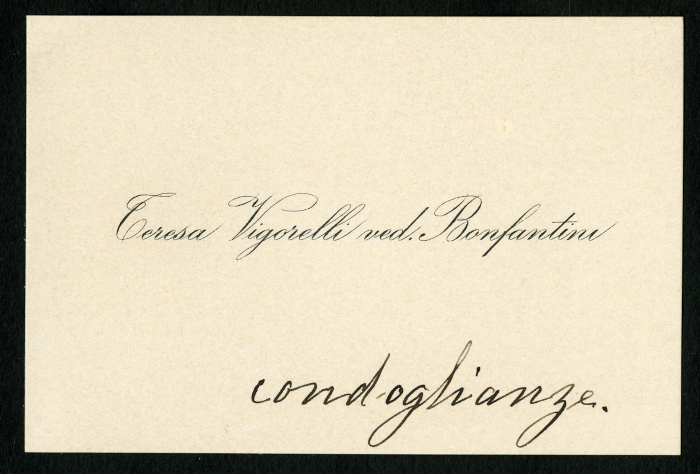 Teresa Vigorelli ved. Bonfantini
condoglianze.